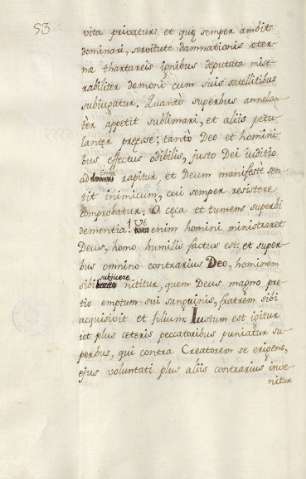 53
vita privatur: et quę semper ambit
dominari, servitute damnationis ęter-
na thartareis ignibus deputata mise-
rabiliter demoni cum suis satellitibus
subiugatur. Quanto superbus annelan-
ter appetit sublimari, et aliis petu-
lanter pręesse; tantò Deo et homini-
bus effectus odibilis, justo Dei iuditio
ad rapitur et Deum manifestè sen-
tit inimicum, cui semper resistere
comprobatur. O cęca et tumens superbi
dementia! enim homini ministraret
Deus, homo humilis factus est: et super-
bus omnino contrarius Deo, hominem
subiicere
sibi nititur, quem Deus magno pre-
tio emptum sui sanguinis, fratrem sibi
acquisivit et filium. Iustum est igitur
ut plus ceteris peccatoribus puniatur su-
perbus, qui contra Creatorem se erigens,
ejus voluntati plus aliis contrarius inve-
nitur